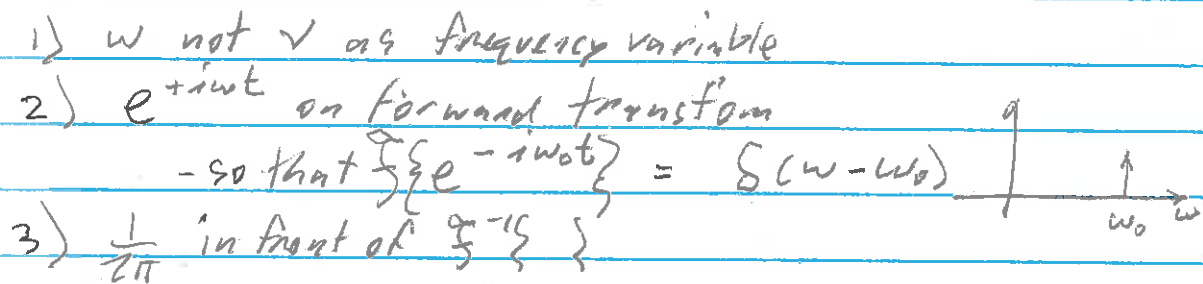 1) ω not ν as frequency variable
2) e^{+iωt} on forward transfom
- so that ℱ{e^{-iω₀t}} = δ(ω-ω₀) ω₀ ω
3) 1/2π in front of ℱ⁻¹{ }